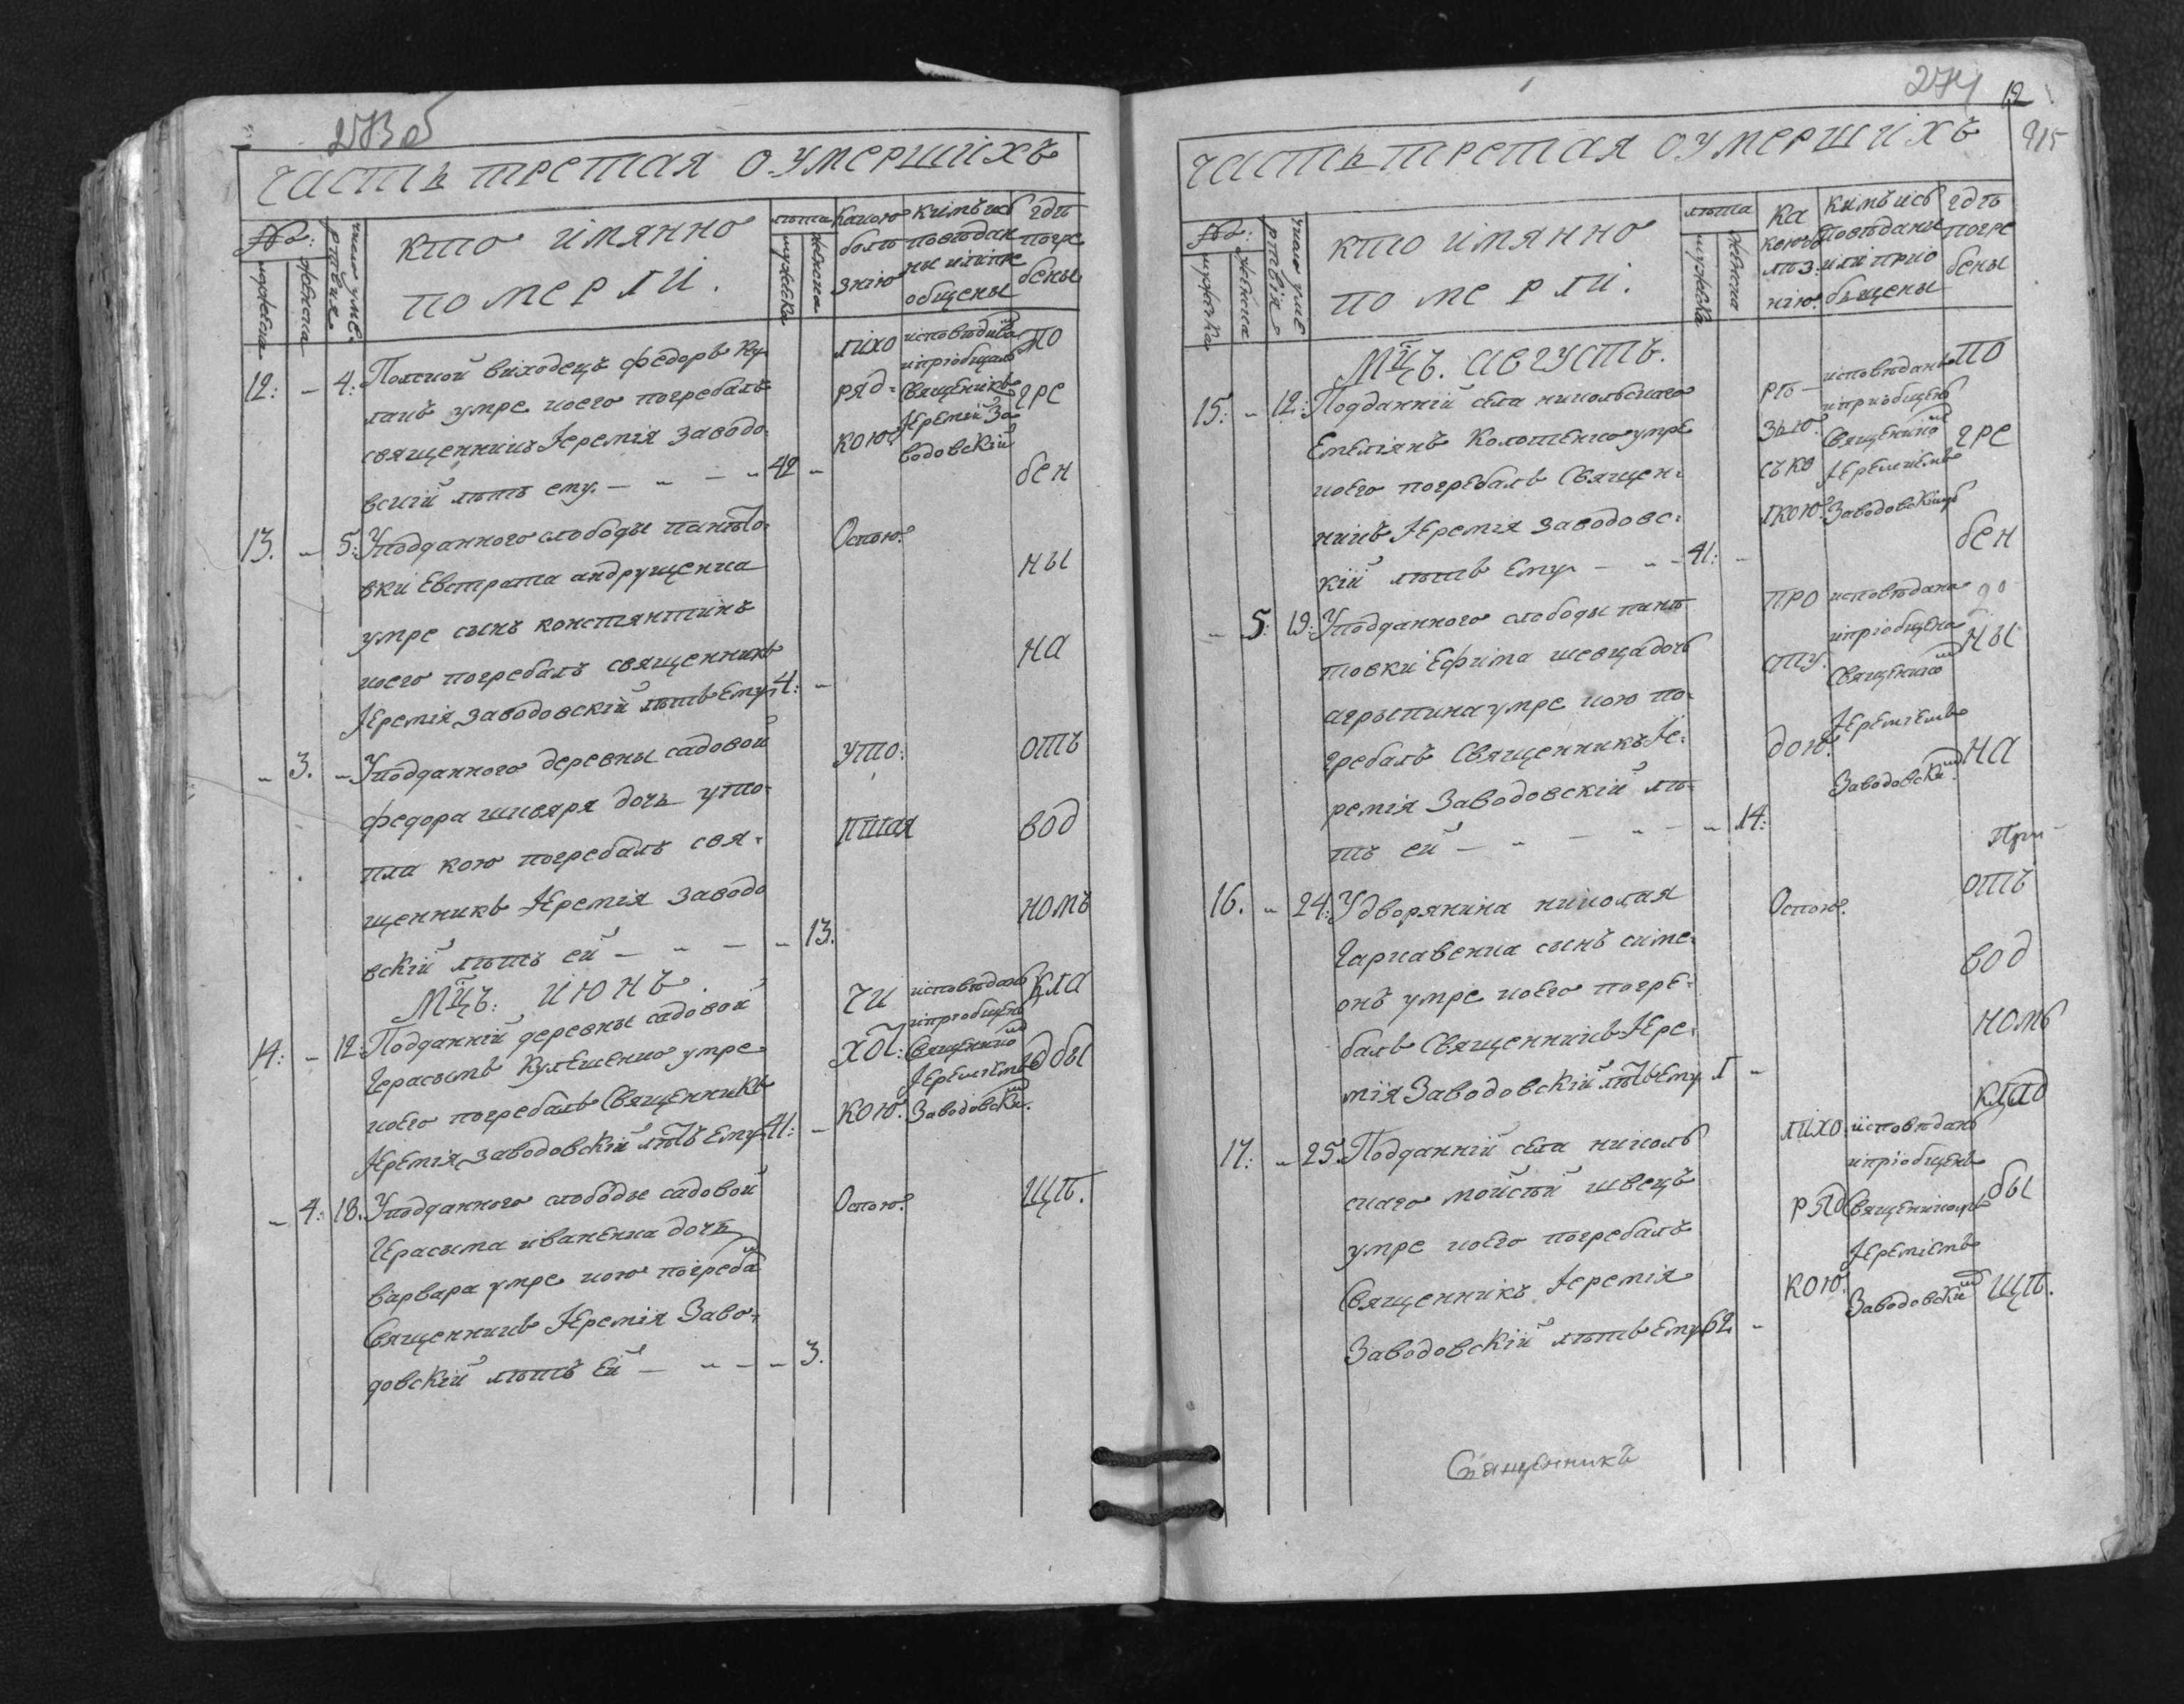 273 об
ЧАСТЬ ТРЕТАЯ О УМЕРШИХЪ
№: мужеска женска
число умертвія
кто імянно
померли.
лѣта мужеска женска
какою болезнію
кимъ исповѣданы или преобщены
гдѣ погребены
12: - 4: Полской виходецъ федоръ Ку
лакъ умре коего погребалъ
священникъ Іеремія Заводо
вскій лѣтъ ему. - 42 -
лихорядкою
исповѣдива
и пріобщалъ
священникъ
Іеремій За
водовскій
13. - 5: У подданного слободы пантѣло
вки Евстрата андрущенка
умре сынъ константинъ
коего погребалъ священникъ
Іеремія Заводовскій лѣтъ Ему 4: -
Оспою.
- 3. - У подданного деревны садовой
федора шкваря дочь уто
пла кою погребалъ свя
щенникъ Іеремія Заводо
вскій лѣтъ ей - 13.
уто:
пшая
Мцъ: ИЮНЬ.
14: - 12: Подданній деревны садовой
Герасымъ Кулешенко умре
коего погребалъ Священникъ
Іеремія Заводовскій лѣтъ Ему 41: -
чи
хот:
кою.
исповѣданъ
и пріобщенъ
Священико
Іереміемъ
Заводовски.
- 4: 18. У подданного слободы садовой
Герасыма иваненка дочь
варвара умре кою погреба
Священникъ Іеремія Заво
довскій лѣтъ Ей - 3.
Оспою.
по
гре
бен
ны
на
отъ
вод
номъ
кла
дбы
щѣ.
274
12
215
ЧАСТЬ ТРЕТАЯ О УМЕРШИХЪ
№: мужеска женска
число умертвія
кто імянно
померли.
лѣта мужеска женска
какою болѣзнію
кимъ исповѣданы или приобщены
гдѣ погребены
Мцъ. АВГУСТЪ.
15: - 12: Подданній села никольского
Емеліянъ Колотенко умре
коего погребалъ Священ
никъ Іеремія Заводовс
кій лѣтъ Ему - 41: -
рѣ
зью
съ ко
лкою.
исповѣданъ
и приобщенъ
Священико
Іереміемъ
Заводовскимъ
- 5: 19: У подданного слободы пантѣ
товки Ефима шевца дочь
агрыпина умре кою по
гребалъ Священникъ Іе
ремія Заводовскій лѣ
тъ ей - 14:
про
сту
дою.
исповѣдана
и пріобщена
Священико
Іереміемъ
Заводовски.
16. - 24: У дворянина николая
Чарнавенка сынъ симе
онъ умре коего погре
балъ Священникъ Іере
мія Заводовскій лѣтъ Ему 1 -
Оспою.
17: - 25. Подданній села николь
скаго мойсѣй швецъ
умре коего погребалъ
Священникъ Іеремія
Заводовскій лѣтъ Ему 62 -
лихо
ряд
кою.
исповѣданъ
и пріобщенъ
Священикомъ
Іереміемъ
Заводовски
по
гре
бен
ны
на
при
отъ
вод
номъ
клад
бы
щѣ.
Священникъ